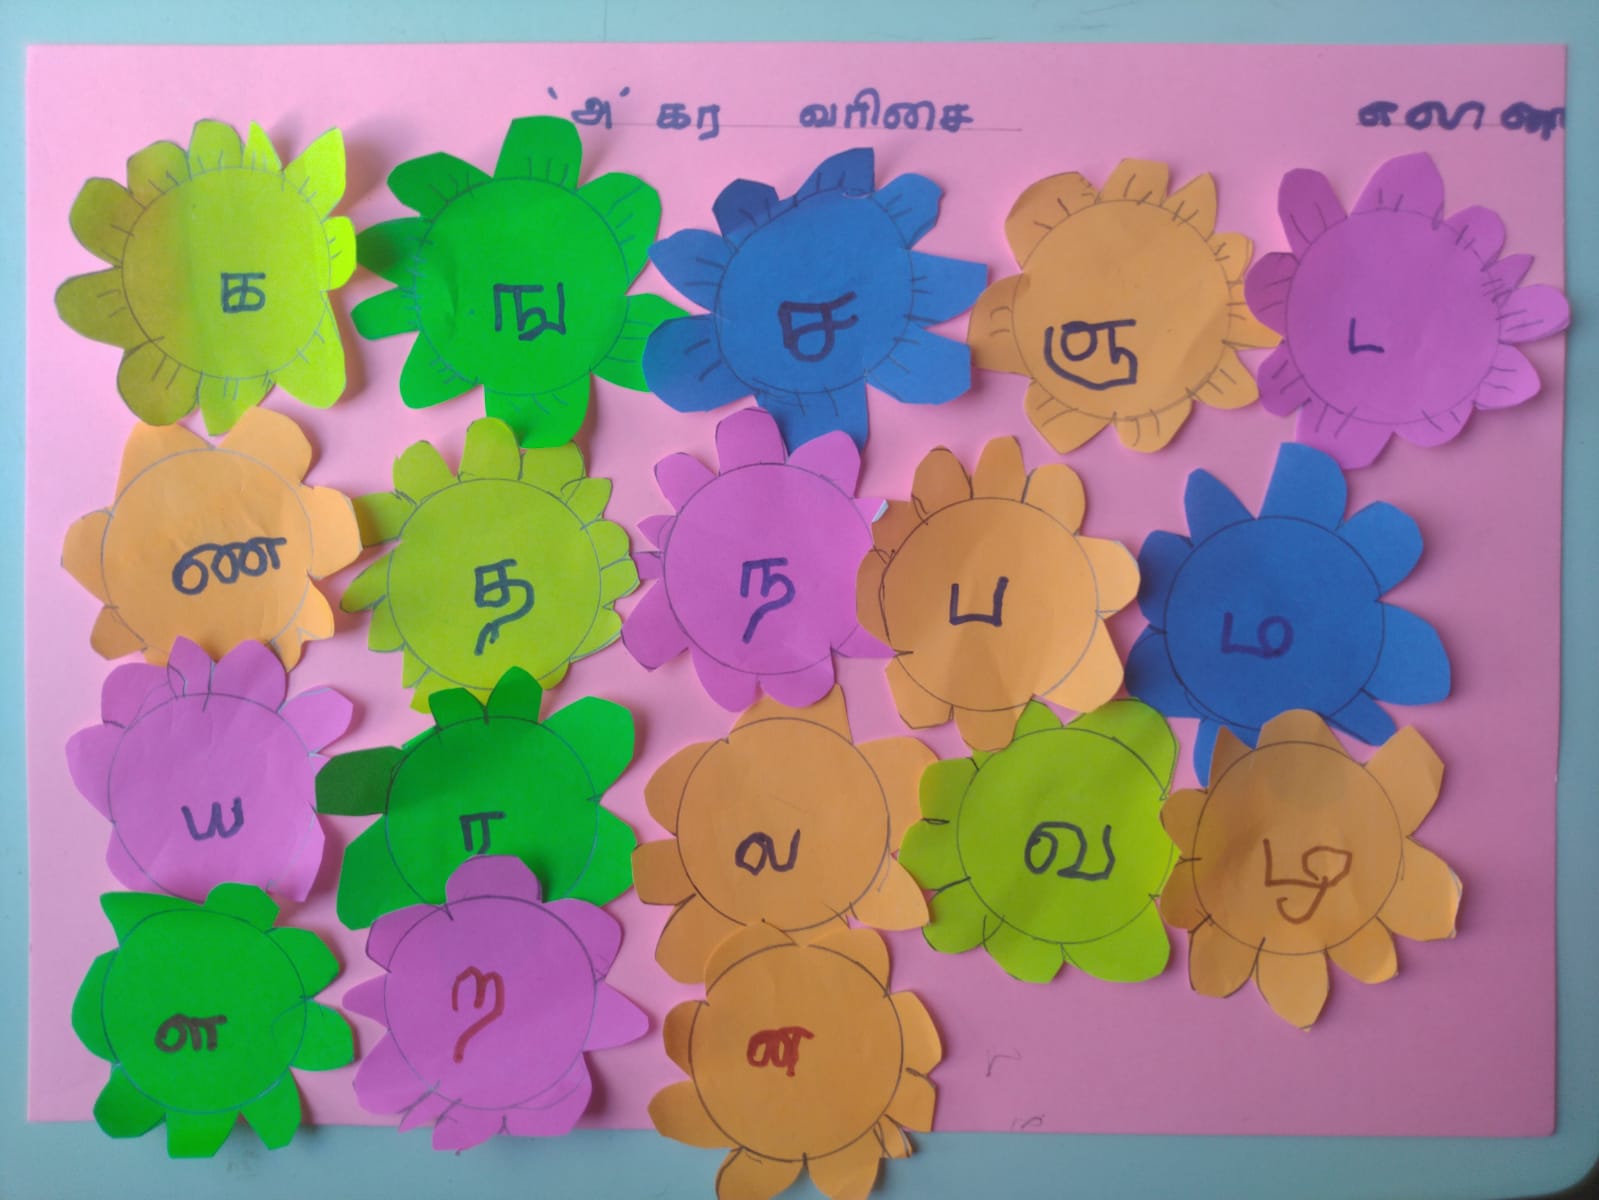 'அ' கர வரிசை
க ங ச ஞ ட
ண த ந ப ம
ய ர ல வ ழ
ள ற ன